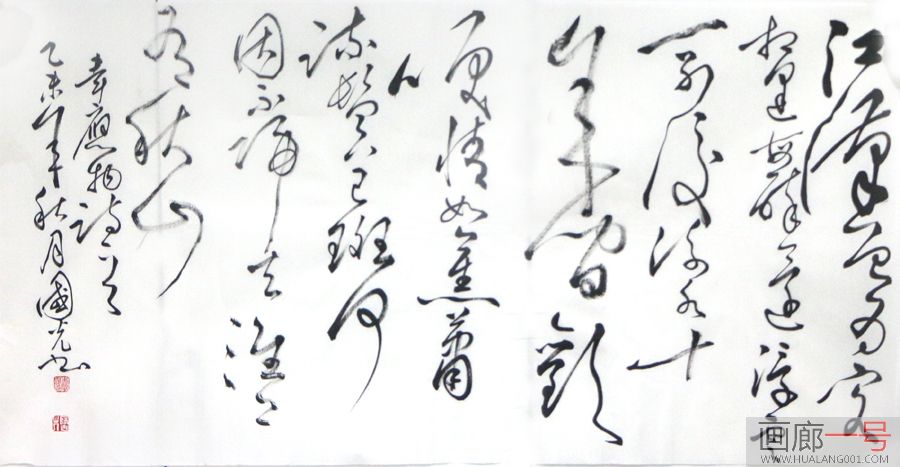 江漢曾為客
相逢每醉還浮雲
一別後流水十
年間歡
笑情如舊蕭
疏鬢已斑何
因不歸去淮上
有秋山
韋應物詩一首
乙未年秋月國光书
画廊一号
WWW.HUALANG001.COM